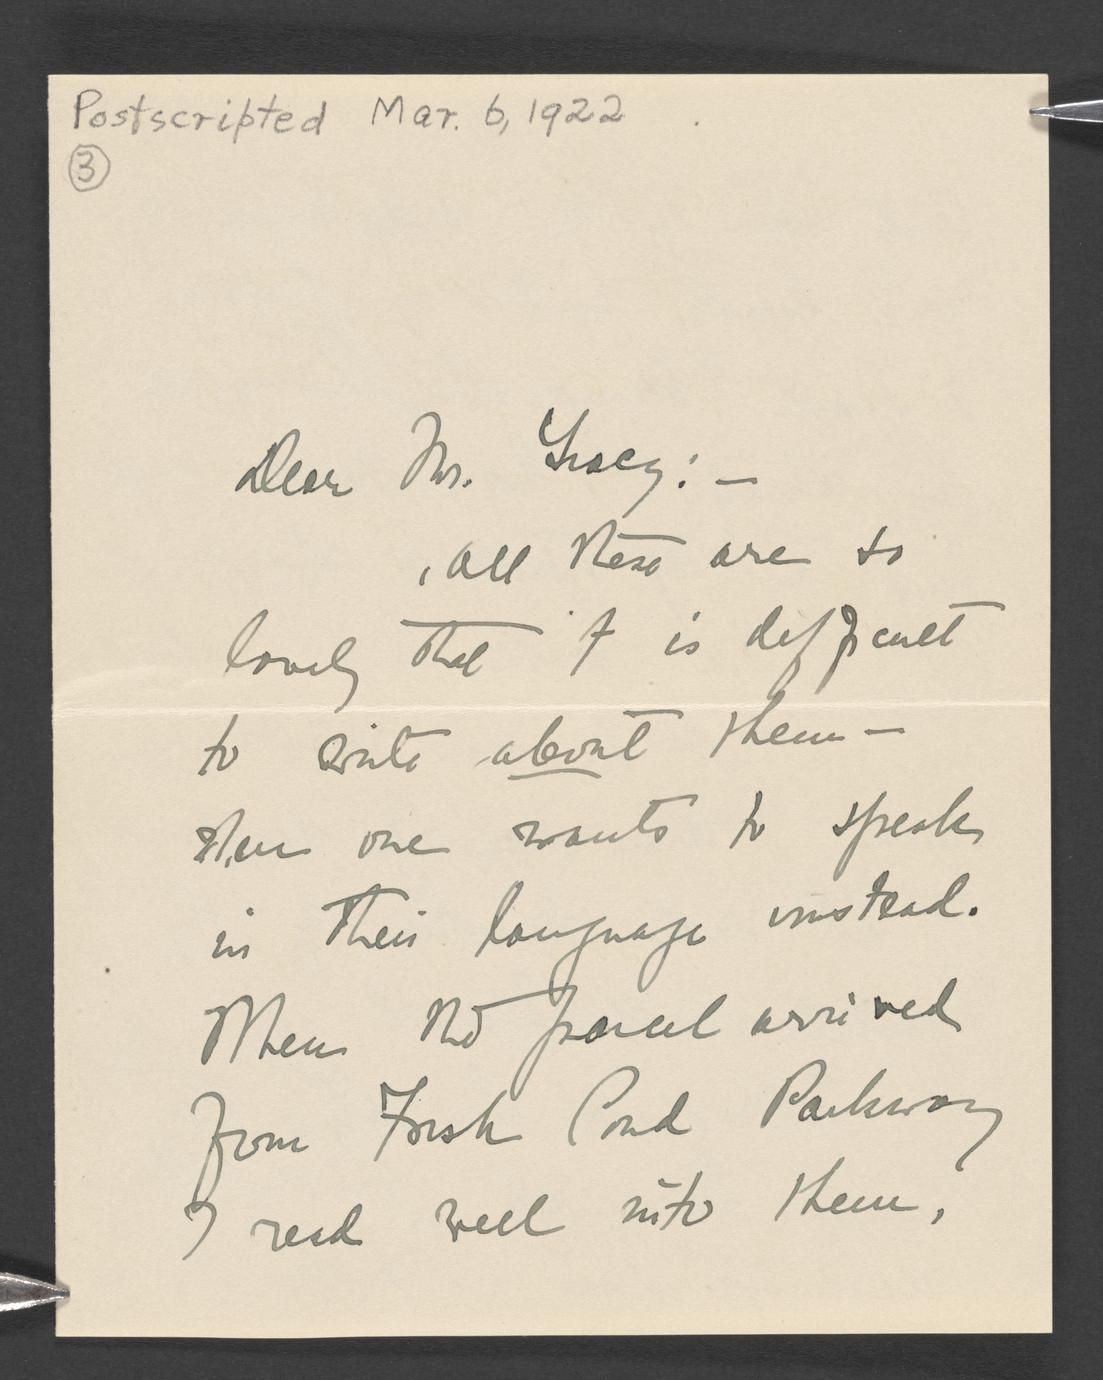 Postscripted Mar. 6, 1922
3
Dear Mr. Tracy: —
all these are so
lovely that it is difficult
to write about them —
then one wants to speak
in their language instead.
When the parcel arrived
from Fresh Pond Parkway
I read well into them,